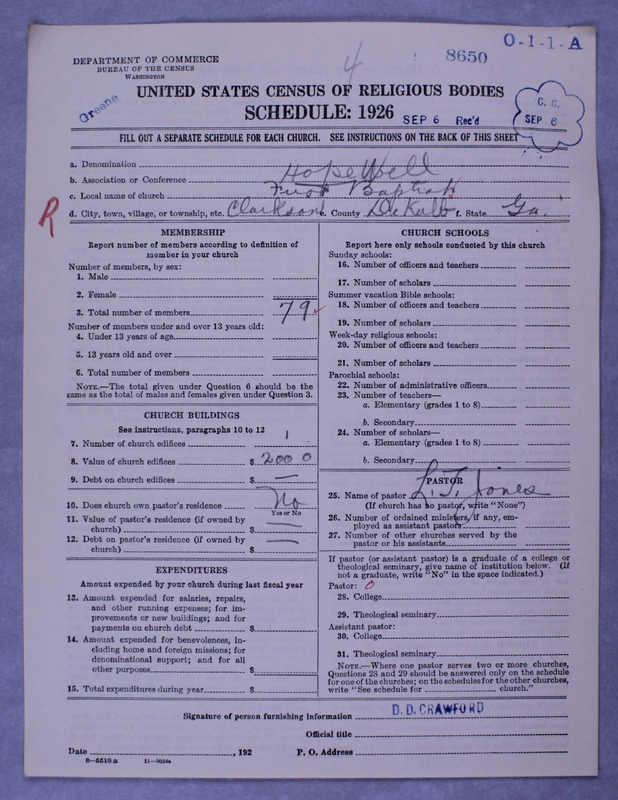 O-1-1-A
4 8650
DEPARTMENT OF COMMERCE
BUREAU OF THE CENSUS
WASHINGTON
Greene
UNITED STATES CENSUS OF RELIGIOUS BODIES
SCHEDULE: 1926
SEP 6 Rec'd
C. C.
SEP 6
FILL OUT A SEPARATE SCHEDULE FOR EACH CHURCH. SEE INSTRUCTIONS ON THE BACK OF THIS SHEET
a. Denomination
b. Association or Conference Hopewell
c. Local name of church First Baptist
R
d. City, town, village, or township, etc. Clarkson e. County DeKalb f. State Ga.
MEMBERSHIP
Report number of members according to definition of
member in your church
Number of members, by sex:
1. Male
2. Female
3. Total number of members 79
Number of members under and over 13 years old:
4. Under 13 years of age
5. 13 years old and over
6. Total number of members
NOTE.—The total given under Question 6 should be the
same as the total of males and females given under Question 3.
CHURCH BUILDINGS
See instructions, paragraphs 10 to 12
7. Number of church edifices 1
8. Value of church edifices $ 2000
9. Debt on church edifices $ —
10. Does church own pastor's residence No
Yes or No
11. Value of pastor's residence (if owned by
church) $ —
12. Debt on pastor's residence (if owned by
church) $ —
EXPENDITURES
Amount expended by your church during last fiscal year
13. Amount expended for salaries, repairs,
and other running expenses; for im-
provements or new buildings; and for
payments on church debt $
14. Amount expended for benevolences, in-
cluding home and foreign missions; for
denominational support; and for all
other purposes $
15. Total expenditures during year $
CHURCH SCHOOLS
Report here only schools conducted by this church
Sunday schools:
16. Number of officers and teachers
17. Number of scholars
Summer vacation Bible schools:
18. Number of officers and teachers
19. Number of scholars
Week-day religious schools:
20. Number of officers and teachers
21. Number of scholars
Parochial schools:
22. Number of administrative officers
23. Number of teachers—
a. Elementary (grades 1 to 8)
b. Secondary
24. Number of scholars—
a. Elementary (grades 1 to 8)
b. Secondary
PASTOR
25. Name of pastor L. T. Jones
(If church has no pastor, write "None")
26. Number of ordained ministers, if any, em-
ployed as assistant pastors
27. Number of other churches served by the
pastor or his assistants
If pastor (or assistant pastor) is a graduate of a college or
theological seminary, give name of institution below. (If
not a graduate, write "No" in the space indicated.)
Pastor: 0
28. College
29. Theological seminary
Assistant pastor:
30. College
31. Theological seminary
NOTE.—Where one pastor serves two or more churches,
Questions 28 and 29 should be answered only on the schedule
for one of the churches; on the schedules for the other churches,
write "See schedule for church."
Signature of person furnishing information D. D. CRAWFORD
Official title
Date , 192 P. O. Address
8—5518a 11—9034a